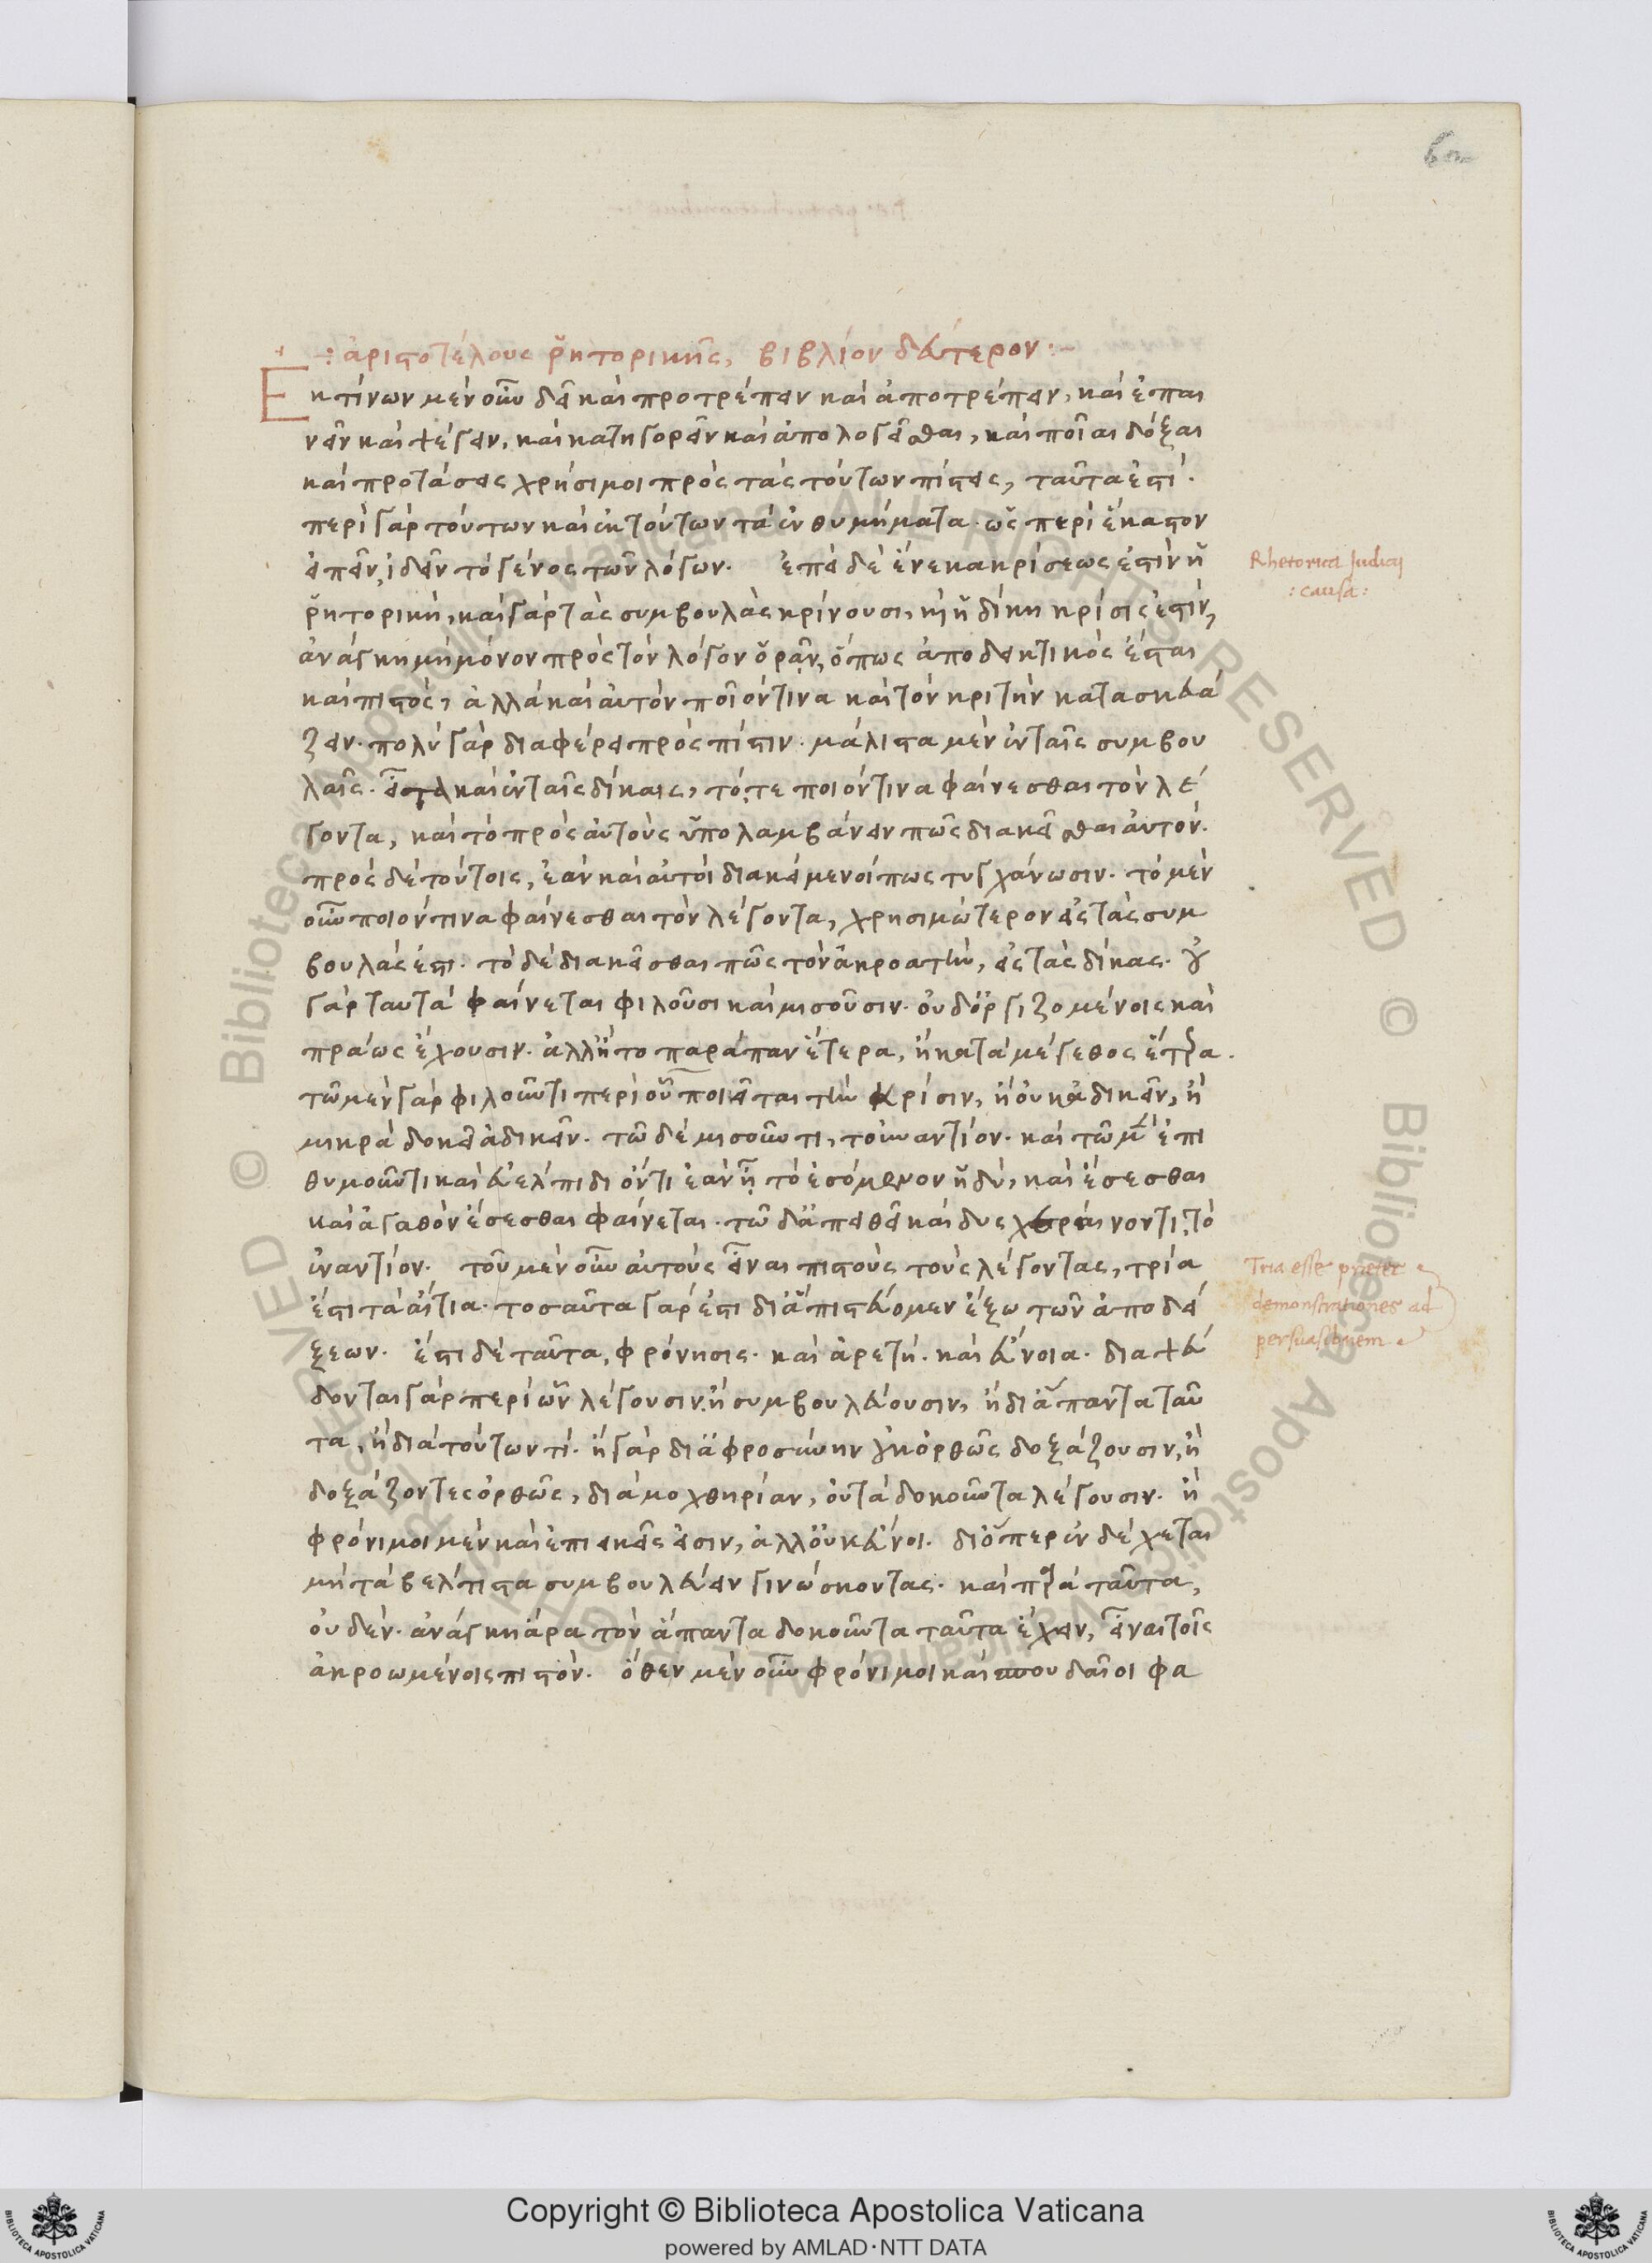 ἀριστοτέλους ῥητορικῆς, βιβλίον δεύτερον:~
Ἐκ τίνων μὲν οὖν δεῖ καὶ προτρέπειν καὶ ἀποτρέπειν, καὶ ἐπαι
νεῖν καὶ ψέγειν, καὶ κατηγορεῖν καὶ ἀπολογεῖσθαι, καὶ ποῖαι δόξαι
καὶ προτάσεις χρήσιμοι πρὸς τὰς τούτων πίστεις, ταῦτα ἐστί.
περὶ γὰρ τούτων καὶ ἐκ τούτων τὰ ἐνθυμήματα. ὡς περὶ ἕκαστον
εἰπεῖν, ἰδεῖν τὸ γένος τῶν λόγων. ἐπεὶ δὲ ἕνεκα κρίσεως ἐστὶν ἡ
ῥητορική, καὶ γὰρ τὰς συμβουλὰς κρίνουσι, καὶ ἡ δίκη κρίσις ἐστίν,
ἀνάγκη μὴ μόνον πρὸς τὸν λόγον ὁρᾶν, ὅπως ἀποδεικτικὸς ἔσται
καὶ πιστός, ἀλλὰ καὶ αὐτὸν ποῖόν τινα καὶ τὸν κριτὴν κατασκευά
ζειν. πολὺ γὰρ διαφέρει πρὸς πίστιν. μάλιστα μὲν ἐν ταῖς συμβου
λαῖς. εἶτα καὶ ἐν ταῖς δίκαις, τό, τε ποιόν τινα φαίνεσθαι τὸν λέ
γοντα, καὶ τὸ πρὸς αὐτοὺς ὑπολαμβάνειν πῶς διακεῖσθαι αὐτόν.
πρὸς δὲ τούτοις, ἐὰν καὶ αὐτοὶ διακείμενοί πως τυγχάνωσιν. τὸ μὲν
οὖν ποιόν τινα φαίνεσθαι τὸν λέγοντα, χρησιμώτερον εἰς τὰς συμ
βουλάς ἐστι. τὸ δὲ διακεῖσθαι πῶς τὸν ἀκροατήν, εἰς τὰς δίκας. οὐ
γὰρ ταυτὰ φαίνεται φιλοῦσι καὶ μισοῦσιν. οὐδ' ὀργιζομένοις καὶ
πράως ἔχουσιν. ἀλλ' ἢ τὸ παράπαν ἕτερα, ἢ κατὰ μέγεθος ἕτερα.
τῷ μὲν γὰρ φιλοῦντι περὶ οὗ ποιεῖται τὴν κρίσιν, ἢ οὐκ ἀδικεῖν, ἢ
μικρὰ δοκεῖ ἀδικεῖν. τῷ δὲ μισοῦντι, τοὐναντίον. καὶ τῷ μὲν ἐπι
θυμοῦντι καὶ εὐέλπιδι ὄντι ἐὰν ᾖ τὸ ἐσόμενον ἡδύ, καὶ ἔσεσθαι
καὶ ἀγαθὸν ἔσεσθαι φαίνεται. τῷ δ' ἀπαθεῖ καὶ δυσχεραίνοντι, τὸ
ἐναντίον. τοῦ μὲν οὖν αὐτοὺς εἶναι πιστοὺς τοὺς λέγοντας, τρία
ἐστὶ τὰ αἴτια. τοσαῦτα γάρ ἐστι δι' ἃ πιστεύομεν ἔξω τῶν ἀποδεί
ξεων. ἔστι δὲ ταῦτα, φρόνησις. καὶ ἀρετή. καὶ εὔνοια. διαψεύ
δονται γὰρ περὶ ὧν λέγουσιν, ἢ συμβουλεύουσιν, ἢ δι' ἅπαντα ταῦ
τα, ἢ διὰ τούτων τί. ἢ γὰρ δι' ἀφροσύνην οὐκ ὀρθῶς δοξάζουσιν, ἢ
δοξάζοντες ὀρθῶς, διὰ μοχθηρίαν, οὐ τὰ δοκοῦντα λέγουσιν. ἢ
φρόνιμοι μὲν καὶ ἐπιεικεῖς εἰσιν, ἀλλ' οὐκ εὖνοι. διόπερ ἐνδέχεται
μὴ τὰ βέλτιστα συμβουλεύειν γινώσκοντας. καὶ παρὰ ταῦτα,
οὐδέν. ἀνάγκη ἄρα τὸν ἅπαντα δοκοῦντα ταῦτα ἔχειν, εἶναι τοῖς
ἀκροωμένοις πιστόν. ὅθεν μὲν οὖν φρόνιμοι καὶ σπουδαῖοι φα
Rhetorica Judicij
: causa :
Tria esse praeter
demonstrationes ad
persuasionem
© Biblioteca Apostolica Vaticana ALL RIGHTS RESERVED
Copyright © Biblioteca Apostolica Vaticana
powered by AMLAD·NTT DATA
BIBLIOTECA APOSTOLICA VATICANA
BIBLIOTECA APOSTOLICA VATICANA